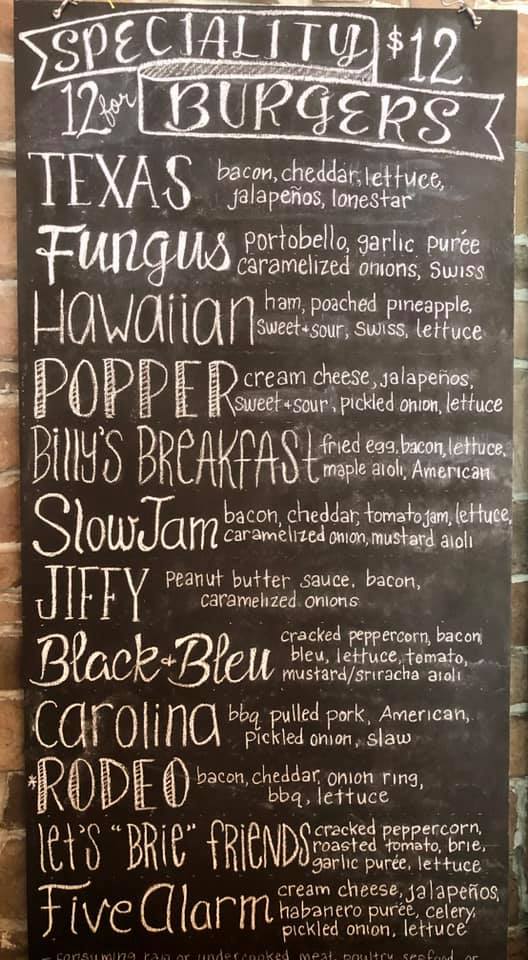 SPECIALITY $12
12 for BURGERS
TEXAS bacon, cheddar, lettuce,
jalapeños, lonestar
Fungus portobello, garlic purée
caramelized onions, Swiss
Hawaiian ham, poached pineapple,
sweet+sour, Swiss, lettuce
POPPER cream cheese, jalapeños,
sweet+sour, pickled onion, lettuce
Billy's BREAKFASt fried egg, bacon, lettuce,
maple aioli, American
Slow Jam bacon, cheddar, tomato jam, lettuce,
caramelized onion, mustard aioli
JIFFY Peanut butter sauce, bacon,
caramelized onions
Black+Bleu cracked peppercorn, bacon
bleu, lettuce, tomato,
mustard/sriracha aioli
Carolina bbq pulled pork, American,
pickled onion, slaw
*RODEO bacon, cheddar, onion ring,
bbq, lettuce
let's "BRiE" fRiENDS cracked peppercorn,
roasted tomato, brie,
garlic purée, lettuce
Five Alarm cream cheese, jalapeños,
habanero purée, celery,
pickled onion, lettuce
- consuming raw or undercooked meat, poultry, seafood, or